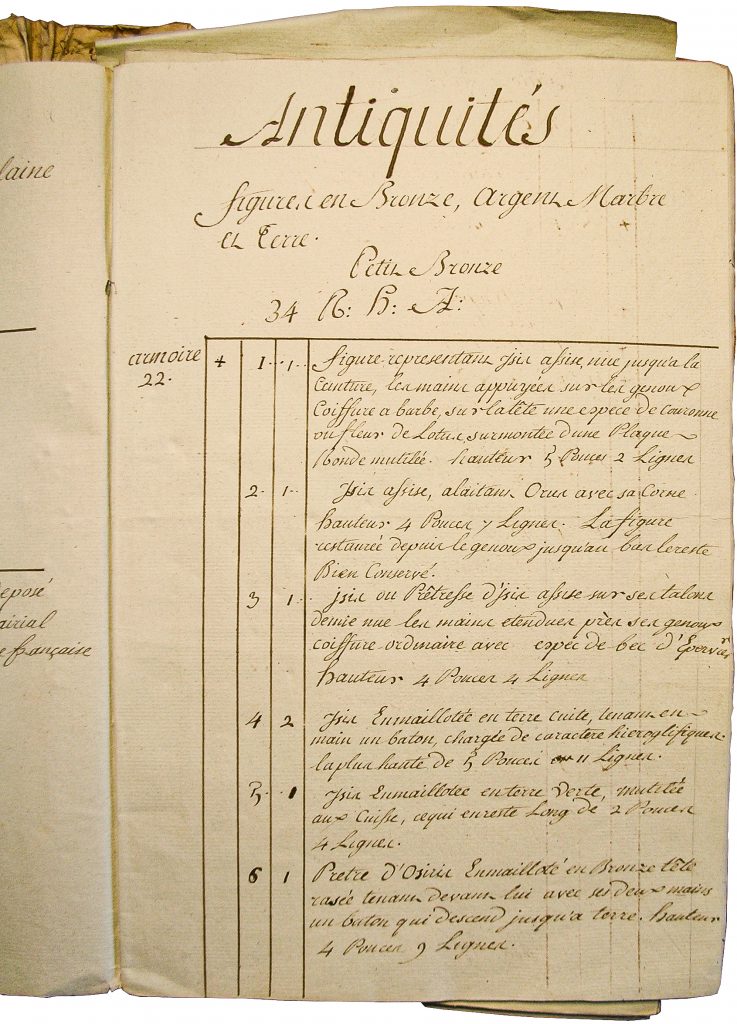 laine
eposé
airial
e française
Antiquités
figures en Bronze, argent Marbre
et Terre.
Petits Bronze
34 R: H: A:
armoire
22.
+ 1. 1. figure representant Isis assise, nüe jusqu'a la
Ceinture, les mains appuyées sur les genoux
Coiffure a barbe, sur la tête une espece de Couronne
ou fleur de Lotus, surmontée d'une Plaque
Ronde mutilée. hauteur 5 Pouces 2 Lignes
2. 1. Isis assise, alaitant Orus avec sa Corne
hauteur 4 Pouces 7 Lignes. La figure
restaurée depuis le genoux jusqu'au bas le reste
Bien Conservé.
3 1. jsis ou Prêtresse d'jsis assise sur ses talons
demie nue les mains etendues près ses genoux
coiffure ordinaire avec espéc de bec d'Epervier
hauteur 4 Pouces 4 Lignes
4 2 Isis Enmaillotée en terre cuite, tenant en
main un baton, chargée de caractère hieroglifiques.
la plus haute de 5 Pouces 11 Lignes.
5. 1 Isis Enmaillotée en terre Verte, mutilée
aux Cuisse, ce qui en reste Long de 2 Pouces
4 Lignes.
6 1 Pretre d'Osiris Enmailloté en Bronze tête
rasée tenant devant lui avec ses deux mains
un baton qui descend jusqu'a terre. hauteur
4 Pouces 9 Lignes.